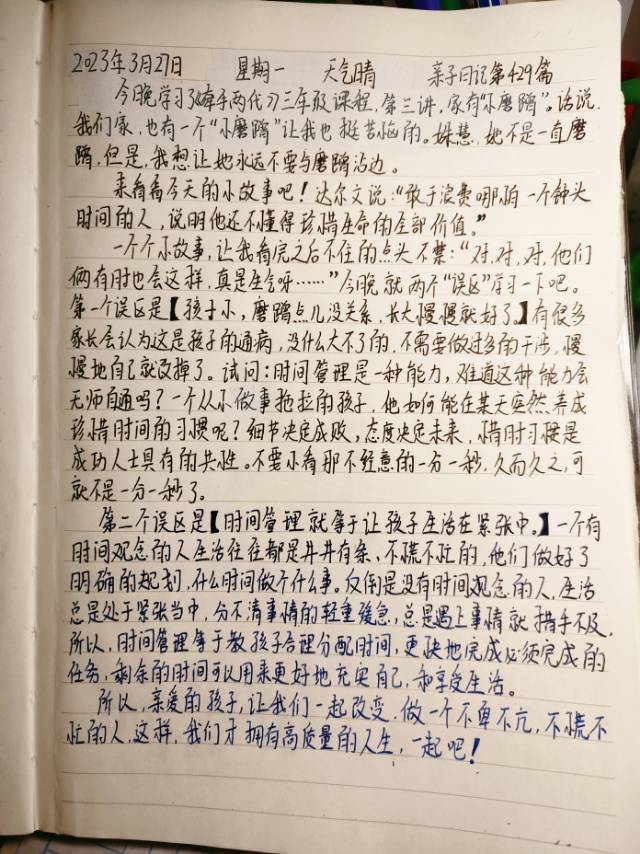 2023年3月27日 星期一 天气晴 亲子日记第429篇
今晚学习了《牵手两代》三年级课程,第三讲,家有"小磨蹭"。话说,
我们家,也有一个"小磨蹭"让我也挺苦恼的。姝慧,她不是一直磨
蹭,但是,我想让她永远不要与磨蹭沾边。
来看看今天的小故事吧!达尔文说:"敢于浪费哪怕一个钟头
时间的人,说明他还不懂得珍惜生命的全部价值。"
一个个小故事,让我看完之后不住的点头不禁:"对,对,对,他们
俩有时也会这样,真是生气呀……"今晚就两个"误区"学习一下吧。
第一个误区是【孩子小,磨蹭点儿没关系,长大慢慢就好了。】有很多
家长会认为这是孩子的通病,没什么大不了的,不需要做过多的干涉,慢
慢地自己就改掉了。试问:时间管理是一种能力,难道这种能力会
无师自通吗?一个从小做事拖拉的孩子,他如何能在某天突然养成
珍惜时间的习惯呢?细节决定成败,态度决定未来,惜时习惯是
成功人士具有的共性。不要小看那不经意的一分一秒,久而久之,可
就不是一分一秒了。
第二个误区是【时间管理就等于让孩子生活在紧张中。】一个有
时间观念的人生活往往都是井井有条、不慌不忙的,他们做好了
明确的规划,什么时间做个什么事。反倒是没有时间观念的人,生活
总是处于紧张当中,分不清事情的轻重缓急,总是遇上事情就措手不及。
所以,时间管理等于教孩子合理分配时间,更快地完成必须完成的
任务,剩余的时间可以用来更好地充实自己,和享受生活。
所以,亲爱的孩子,让我们一起改变,做一个不卑不亢,不慌不
忙的人,这样,我们才拥有高质量的人生,一起吧!